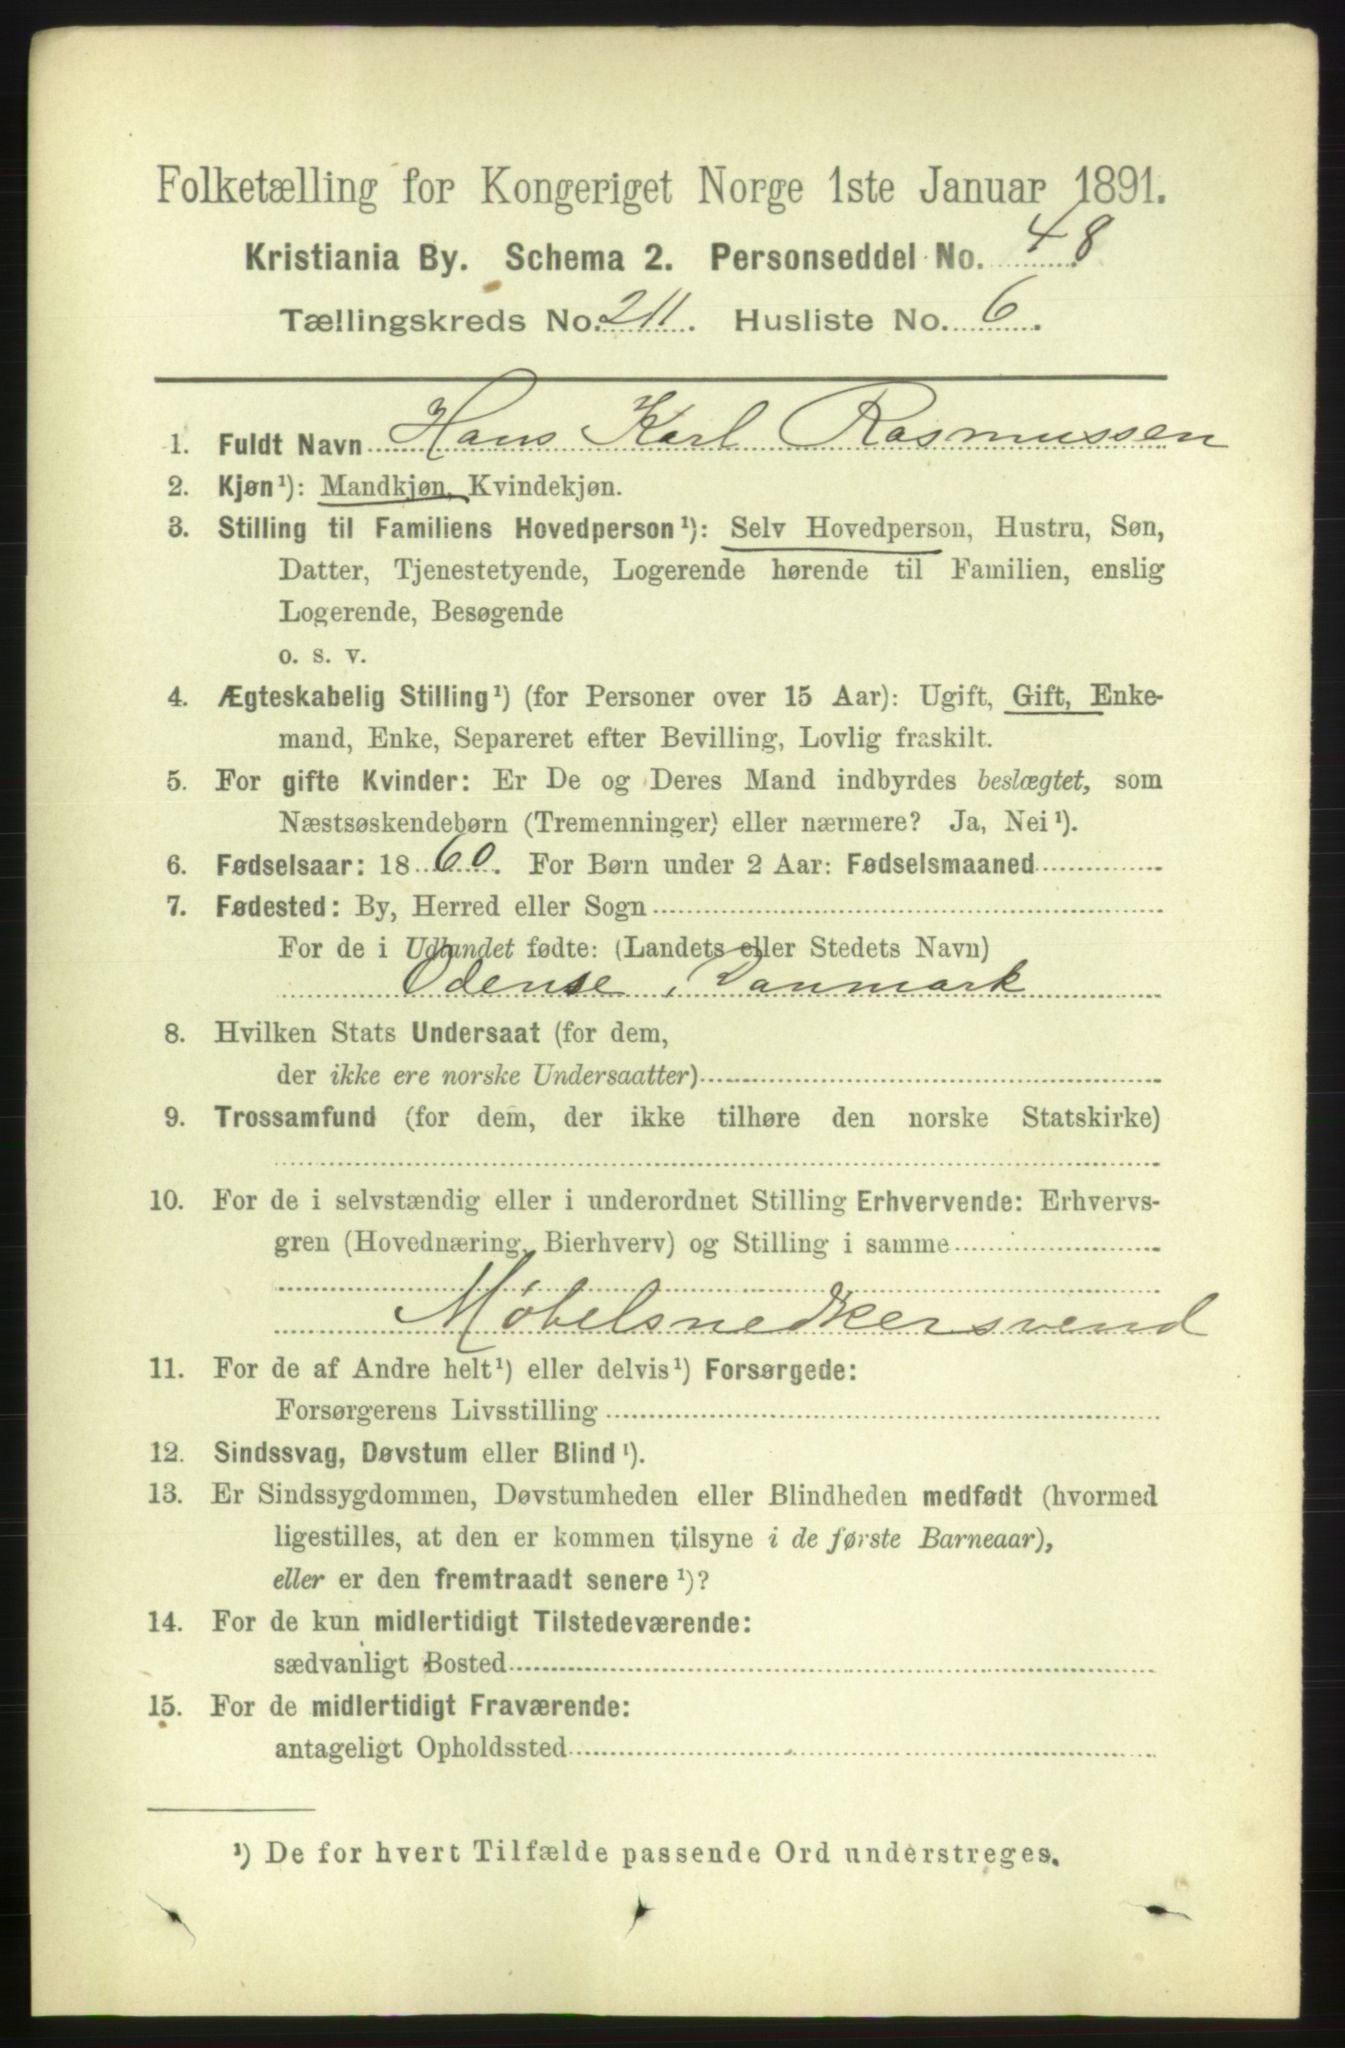 Folketælling for Kongeriget Norge 1ste Januar 1891.
Kristiania By. Schema 2. Personseddel No. 48
Tællingskreds No. 211. Husliste No. 6.
1. Fuldt Navn Hans Karl Rasmussen
2. Kjøn¹): Mandkjøn, Kvindekjøn.
3. Stilling til Familiens Hovedperson¹): Selv Hovedperson, Hustru, Søn,
Datter, Tjenestetyende, Logerende hørende til Familien, enslig
Logerende, Besøgende
o. s. v.
4. Ægteskabelig Stilling¹) (for Personer over 15 Aar): Ugift, Gift, Enke-
mand, Enke, Separeret efter Bevilling, Lovlig fraskilt.
5. For gifte Kvinder: Er De og Deres Mand indbyrdes beslægtet, som
Næstsøskendebørn (Tremenninger) eller nærmere? Ja, Nei¹).
6. Fødselsaar: 1860. For Børn under 2 Aar: Fødselsmaaned
7. Fødested: By, Herred eller Sogn
For de i Udlandet fødte: (Landets eller Stedets Navn)
Odense, Danmark
8. Hvilken Stats Undersaat (for dem,
der ikke ere norske Undersaatter)
9. Trossamfund (for dem, der ikke tilhøre den norske Statskirke)
10. For de i selvstændig eller i underordnet Stilling Erhvervende: Erhvervs-
gren (Hovednæring, Bierhverv) og Stilling i samme
Møbelsnedkersvend
11. For de af Andre helt¹) eller delvis¹) Forsørgede:
Forsørgerens Livsstilling
12. Sindssvag, Døvstum eller Blind¹).
13. Er Sindssygdommen, Døvstumheden eller Blindheden medfødt (hvormed
ligestilles, at den er kommen tilsyne i de første Barneaar),
eller er den fremtraadt senere¹)?
14. For de kun midlertidigt Tilstedeværende:
sædvanligt Bosted
15. For de midlertidigt Fraværende:
antageligt Opholdssted
¹) De for hvert Tilfælde passende Ord understreges.